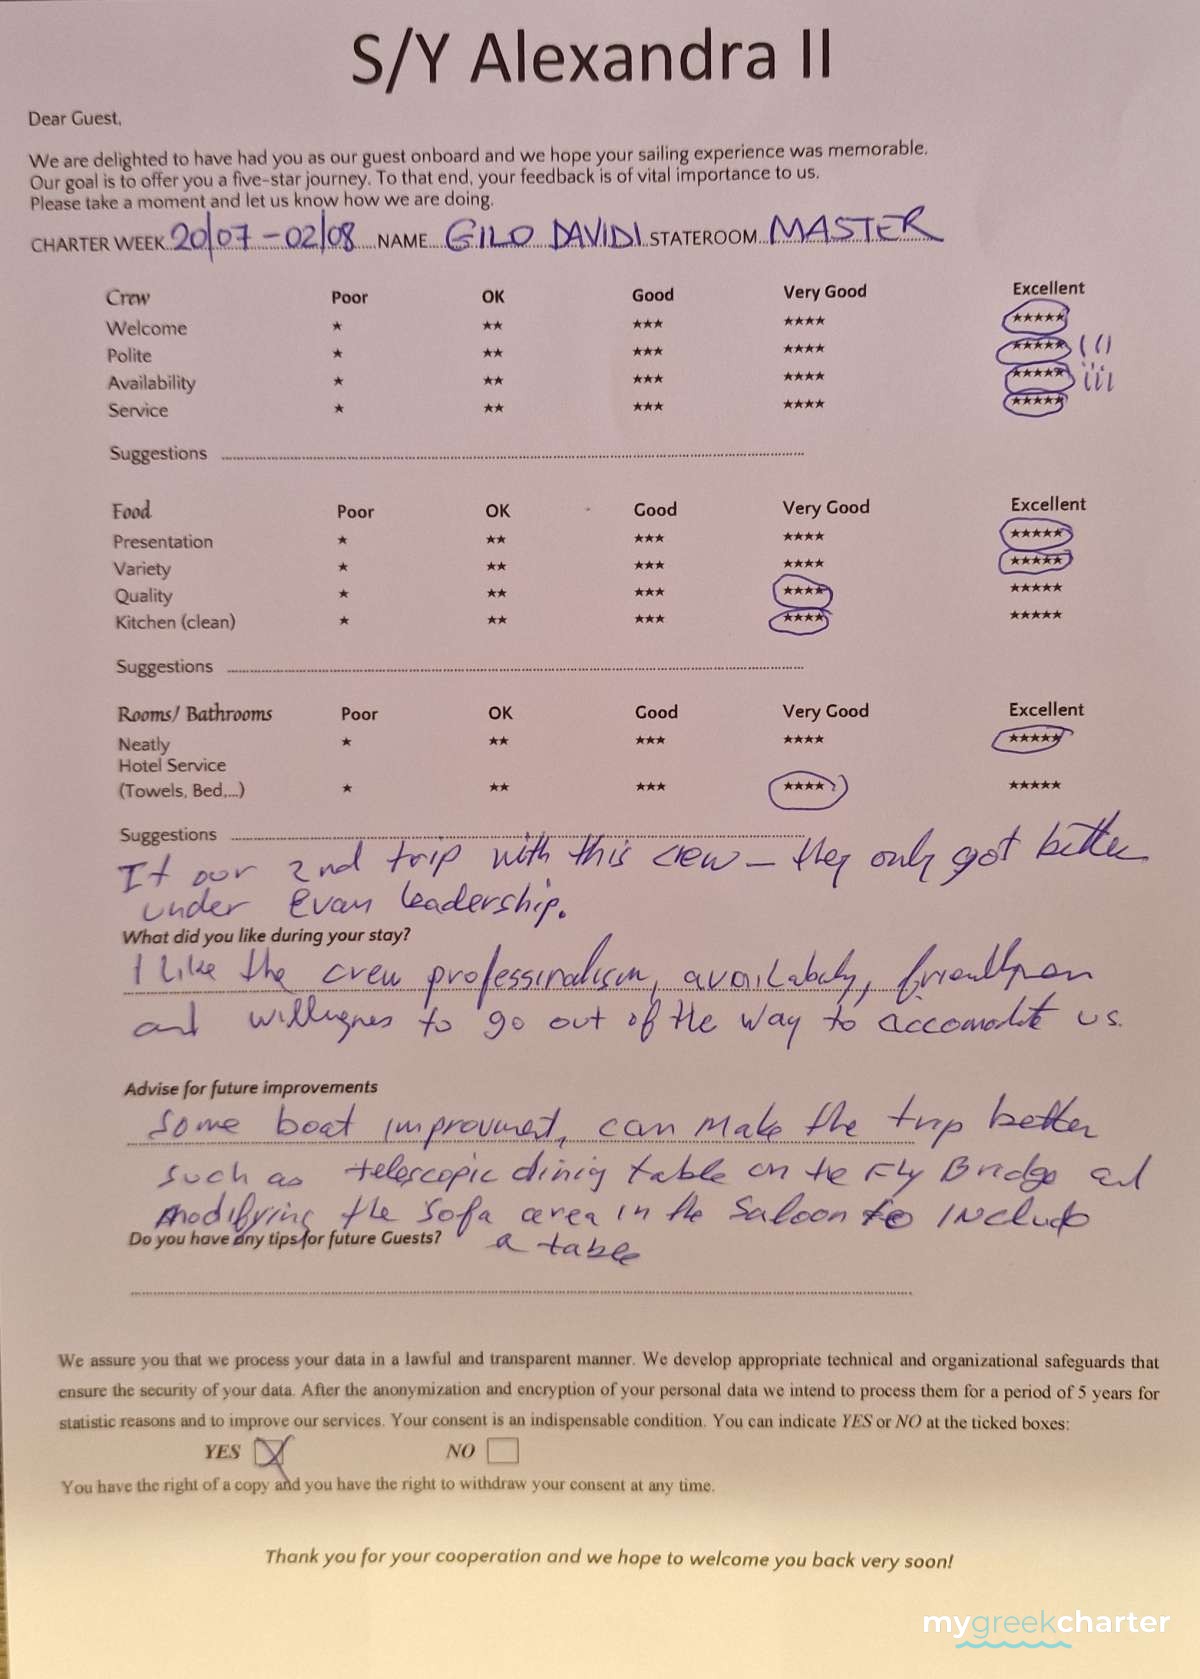 S/Y Alexandra II
Dear Guest,
We are delighted to have had you as our guest onboard and we hope your sailing experience was memorable.
Our goal is to offer you a five-star journey. To that end, your feedback is of vital importance to us.
Please take a moment and let us know how we are doing.
CHARTER WEEK 20/07 - 02/08 NAME GILO DAVIDI STATEROOM MASTER
Crew Poor OK Good Very Good Excellent
Welcome ★ ★★ ★★★ ★★★★ ★★★★★
Polite ★ ★★ ★★★ ★★★★ ★★★★★ !!!
Availability ★ ★★ ★★★ ★★★★ ★★★★★ !!!
Service ★ ★★ ★★★ ★★★★ ★★★★★
Suggestions
Food Poor OK Good Very Good Excellent
Presentation ★ ★★ ★★★ ★★★★ ★★★★★
Variety ★ ★★ ★★★ ★★★★ ★★★★★
Quality ★ ★★ ★★★ ★★★★ ★★★★★
Kitchen (clean) ★ ★★ ★★★ ★★★★ ★★★★★
Suggestions
Rooms/ Bathrooms Poor OK Good Very Good Excellent
Neatly ★ ★★ ★★★ ★★★★ ★★★★★
Hotel Service
(Towels, Bed,...) ★ ★★ ★★★ ★★★★ ★★★★★
Suggestions
It our 2nd trip with this crew – they only got better
under Evan leadership.
What did you like during your stay?
I like the crew professionalism, availability,
and willingnes to go out of the way to accomodate us.
Advise for future improvements
Some boat improvment, can make the trip better
such as telescopic dining table on the Fly Bridge and
modifying the sofa area in the Saloon to include
Do you have any tips for future Guests? a table
We assure you that we process your data in a lawful and transparent manner. We develop appropriate technical and organizational safeguards that
ensure the security of your data. After the anonymization and encryption of your personal data we intend to process them for a period of 5 years for
statistic reasons and to improve our services. Your consent is an indispensable condition. You can indicate YES or NO at the ticked boxes:
YES NO
You have the right of a copy and you have the right to withdraw your consent at any time.
Thank you for your cooperation and we hope to welcome you back very soon!
mygreekcharter